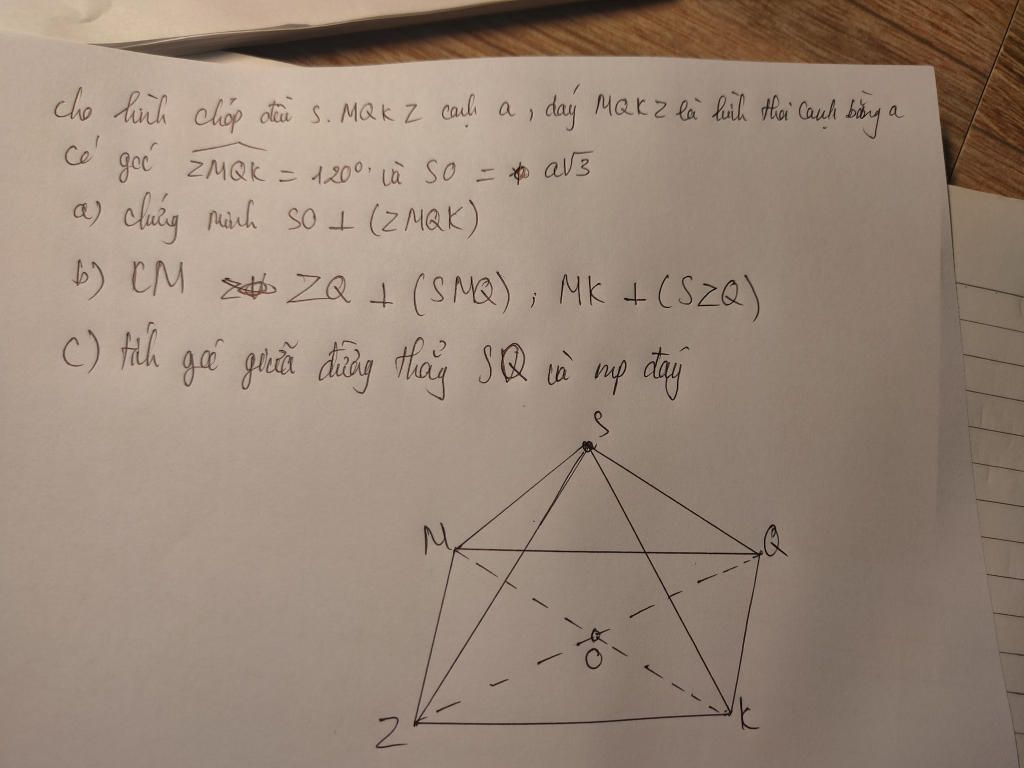 cho hình chóp đều S.MQKZ cạnh a, đáy MQKZ là hình thoi cạnh bằng a
có góc ZMQK = 120° và SO = a√3
a) chứng minh SO ⊥ (ZMQK)
b) CM ZQ ⊥ (SMQ), MK ⊥ (SZQ)
c) tính góc giữa đường thẳng SQ và mp đáy
S
M
Q
O
Z
K